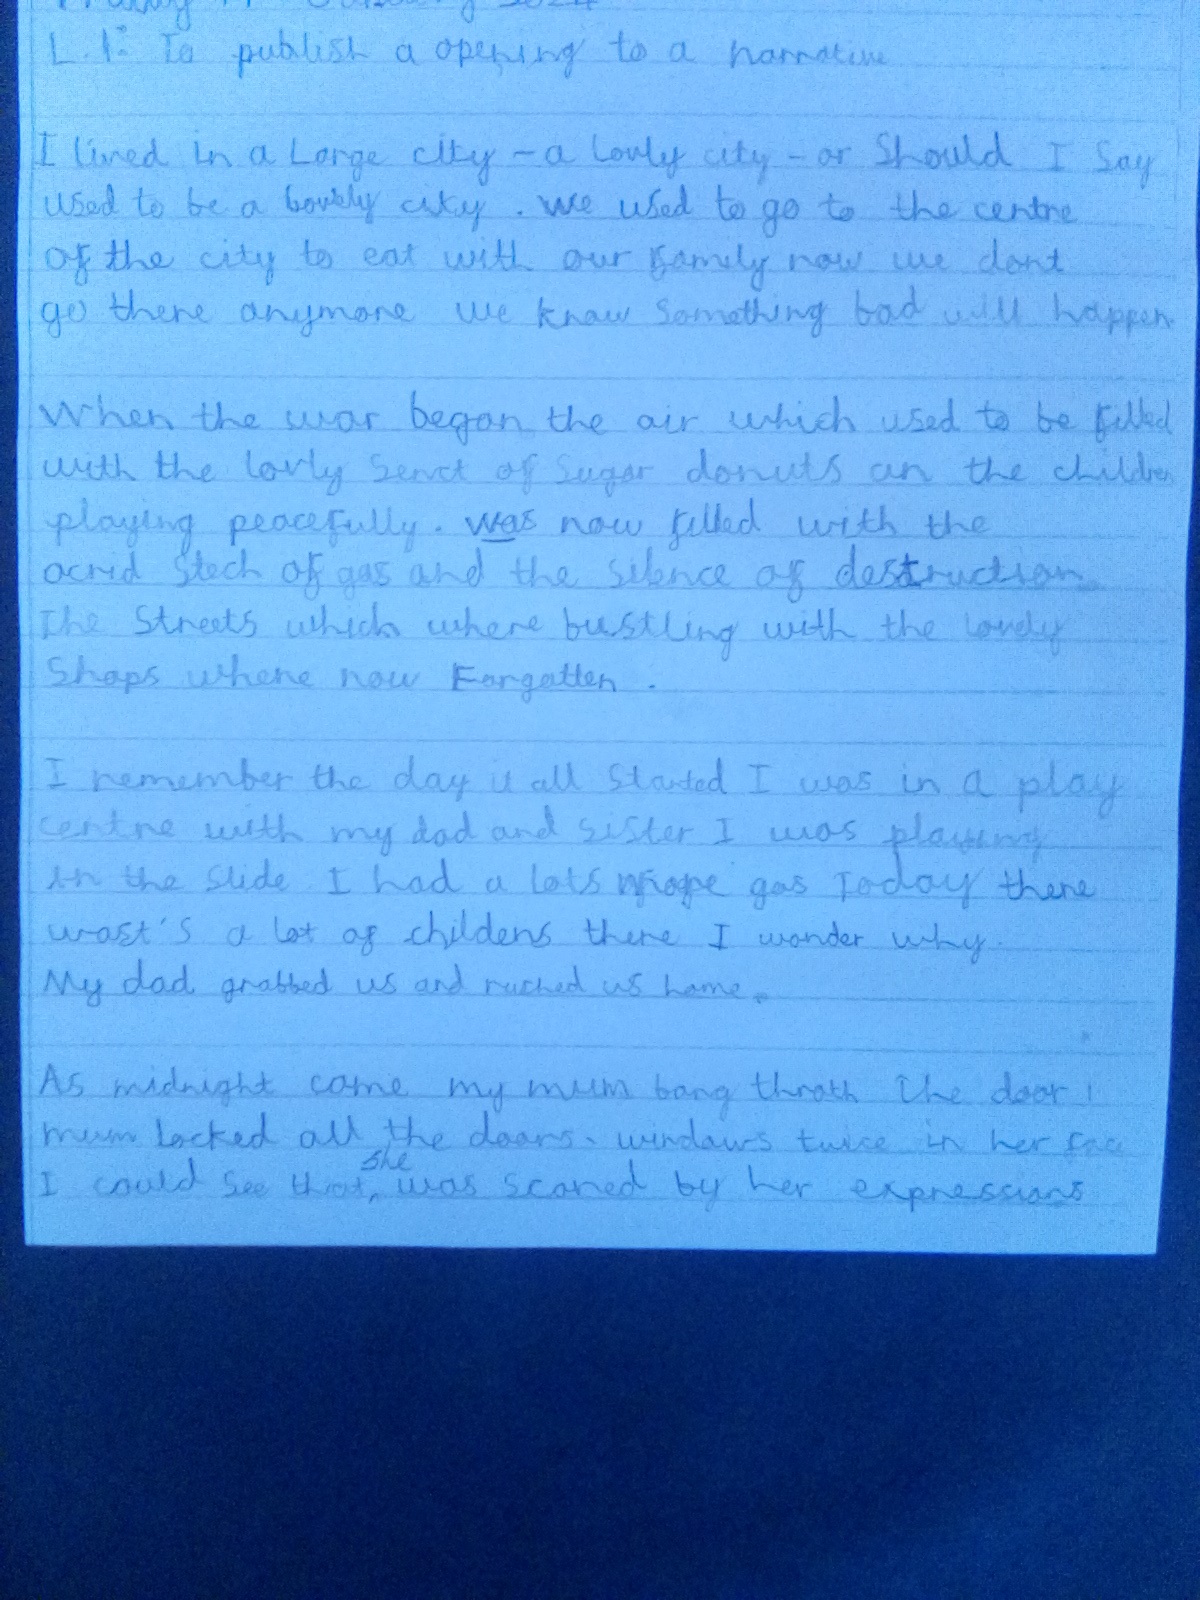 L.I: To publish a opening to a narrative
I lived in a Large city - a lovly city - or Should I Say
used to be a lovely city. we used to go to the centre
of the city to eat with our family now we dont
go there anymore we know Something bad will happen
When the war began the air which used to be filled
with the lovly Senct of Sugar donuts an the children
playing peacefully. was now filled with the
acrid Stech of gas and the silence of destruction
The Streets which where bustling with the lovely
Shops where now Forgotten.
I remember the day it all Started I was in a play
centre with my dad and sister I was playing
in the Slide I had a lots gas Today there
wast's a lot of childens there I wonder why.
My dad grabbed us and ruched us home.
As midnight came my mum bang throth The door
mum locked all the doors. windows twice in her
I could See that she was scared by her expressions